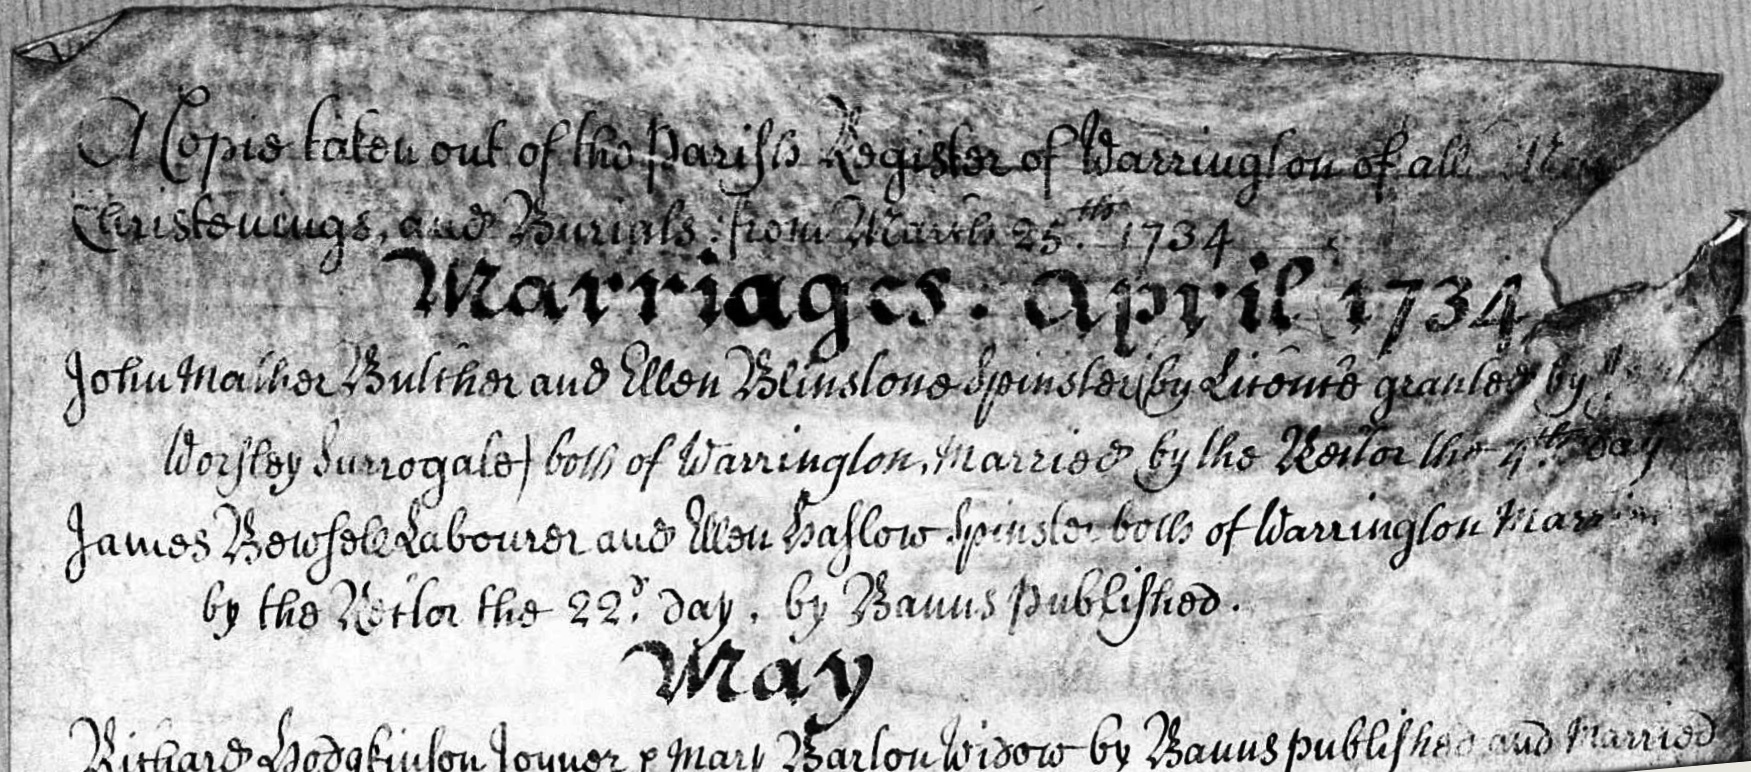 A Copie taken out of the Parish Register of Warrington of all
Christenings, and Burials from March 25.th 1734
Marriages. April 1734
John Mather Butcher and Ellen Blinstone Spinster (by Licence granted by
Worsley Surrogate) both of Warrington, Married by the Rector the 4.th day
James Bewsell Labourer and Ellen Haslow Spinster both of Warrington
by the Rector the 22.d day. by Banns Published.
May
Richard Hodgkinson Joyner & Mary Barton Widow by Banns published and Married